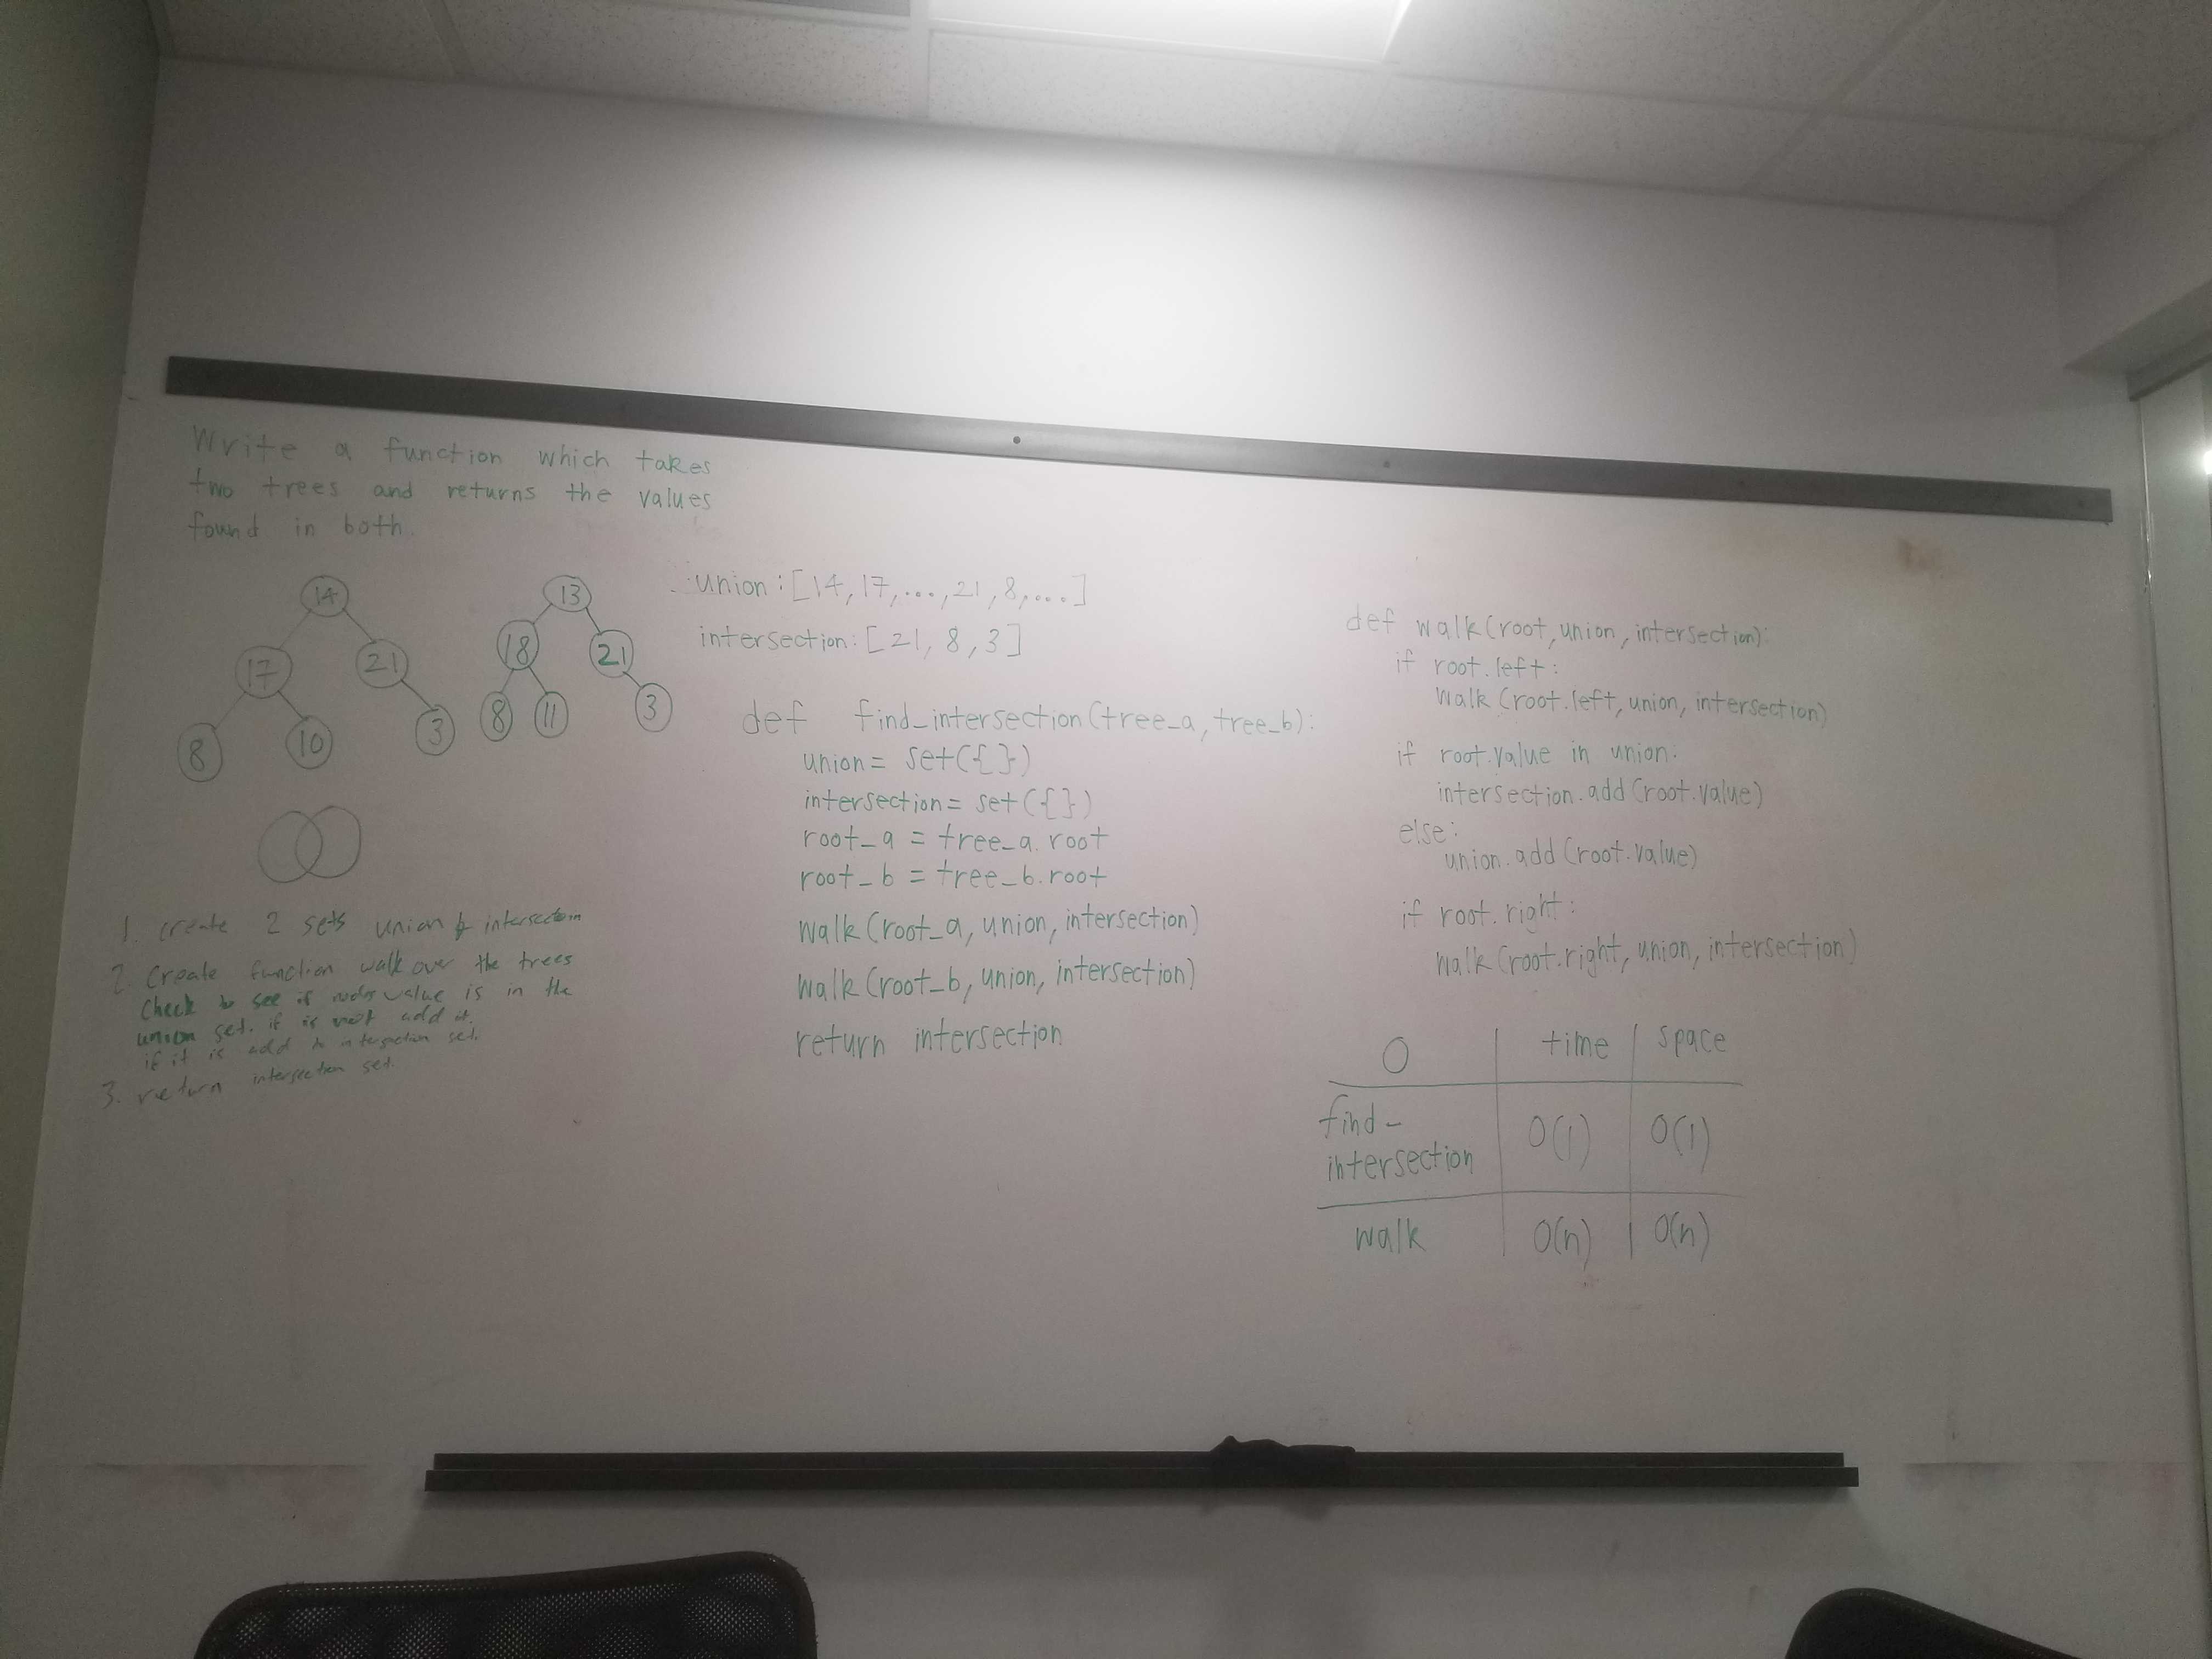 Write a function which takes
two trees and returns the values
found in both.
14
17
21
8
10
3
13
18
21
8
11
3
union: [14, 17, ..., 21, 8, ....]
intersection: [21, 8, 3]
1. create 2 sets union & intersection
2 Create function walk over the trees
check to see if nodes value is in the
union set. if is not add it.
if it is add to intersection set.
3. return intersection set.
def find_intersection(tree_a, tree_b):
union = set({})
intersection = set({})
root_a = tree_a.root
root_b = tree_b.root
walk(root_a, union, intersection)
walk(root_b, union, intersection)
return intersection
def walk(root, union, intersection):
if root.left:
walk(root.left, union, intersection)
if root.value in union:
intersection.add(root.value)
else:
union.add(root.value)
if root.right:
walk(root.right, union, intersection)
O time space
find-
intersection O(1) O(1)
walk O(n) O(n)